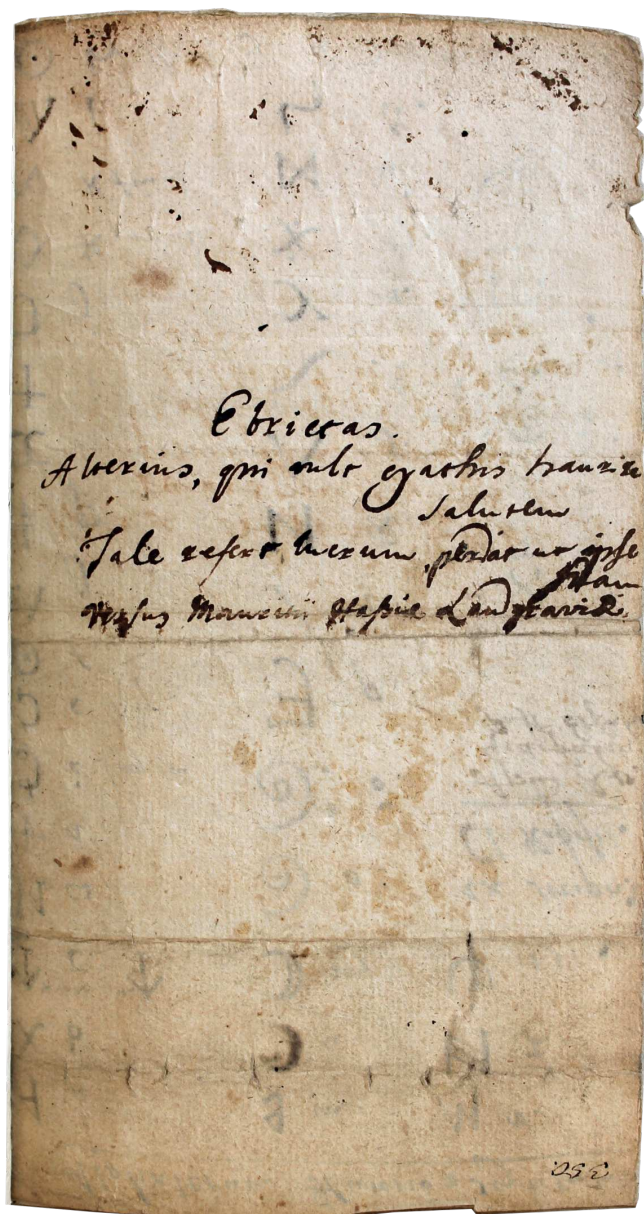 Ebrietas.
Alterius, qui vult cyathis haurire
salutem
Tale refert lucrum, perdat ut ipse
suam
Versus Mauritii Hassiæ Landgravii.
350